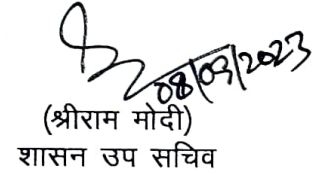 08/03/2023
(श्रीराम मोदी)
शासन उप सचिव